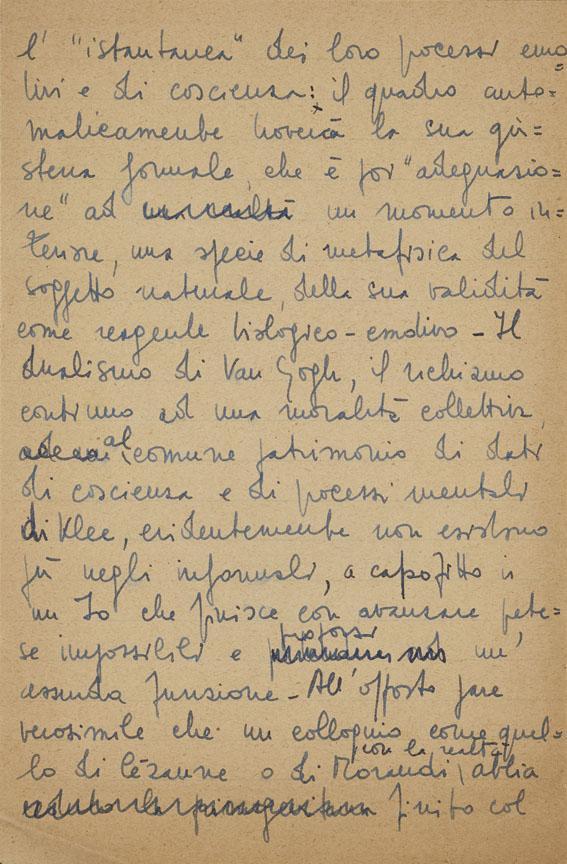 l' "istantanea" dei loro processi emo=
tivi e di coscienza: il quadro auto=
maticamente troverà la sua giu=
stezza formale, che è poi "adeguazio=
ne" ad un momento in=
teriore, una specie di metafisica del
soggetto naturale, della sua validità
come reagente biologico-emotivo - Il
dualismo di Van Gogh, il richiamo
continuo ad una moralità collettiva,
al comune patrimonio di dati
di coscienza e di processi mentali
di Klee, evidentemente non esistono
più negli informali, a capofitto in
un Io che finisce con avanzare prete=
se impossibili e proporsi un'
assurda funzione - All'opposto pare
verosimile che un colloquio come quel=
lo di Cézanne o di Morandi con la realtà, abbia
finito col